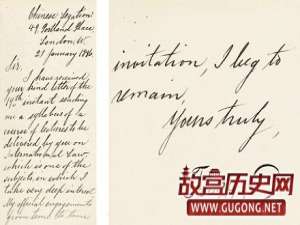 Chinese Legation
49, Portland Place,
London, W.
21 January 1886.
Sir,
I have received
your kind letter of the
19th instant sending
me a syllabus of a
course of lectures to be
delivered by you on
International Law
which is one of the
subjects in which I
take very deep interest.
My official engagements
invitation, I beg to
remain,
Yours truly,
故宫历史网
WWW.GUGONG.NET